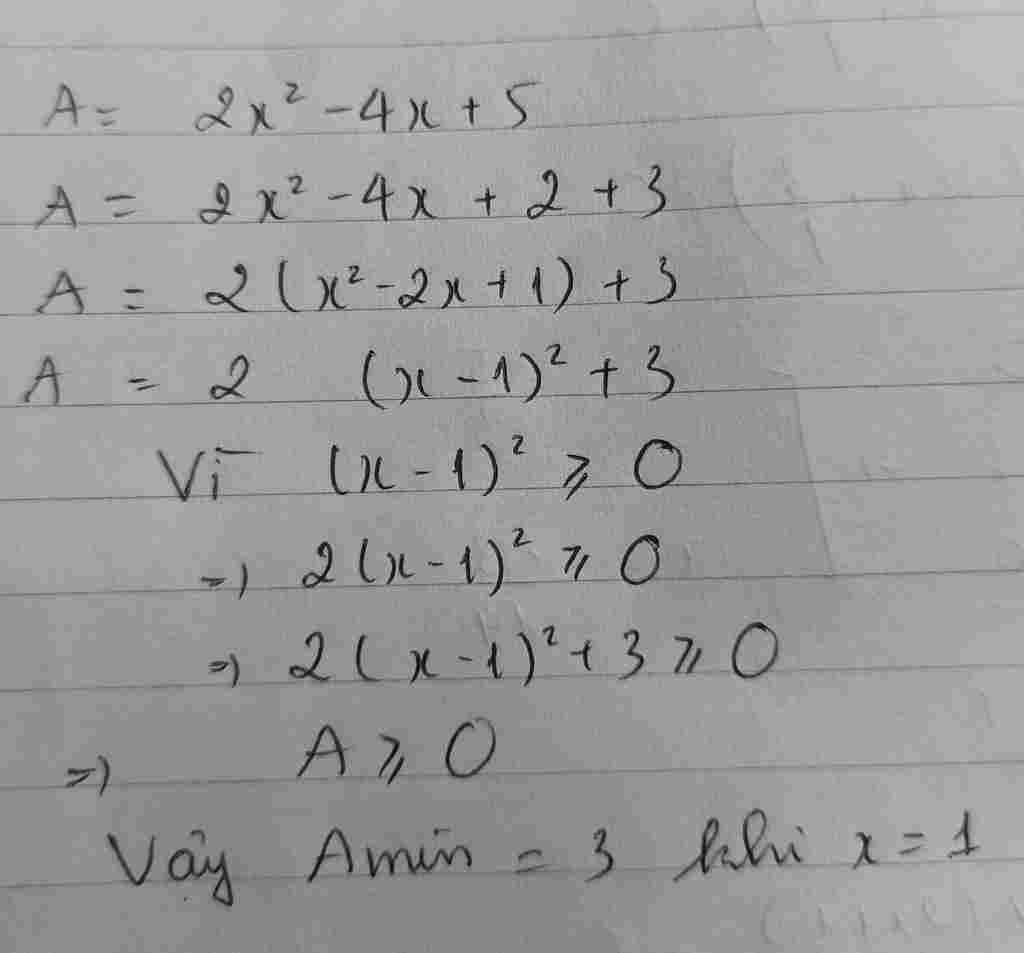 A = 2x² - 4x + 5
A = 2x² - 4x + 2 + 3
A = 2(x² - 2x + 1) + 3
A = 2 (x - 1)² + 3
Vì (x - 1)² ⩾ 0
=) 2(x - 1)² ⩾ 0
=) 2(x - 1)² + 3 ⩾ 0
=) A ⩾ 0
Vậy Amin = 3 khi x = 1